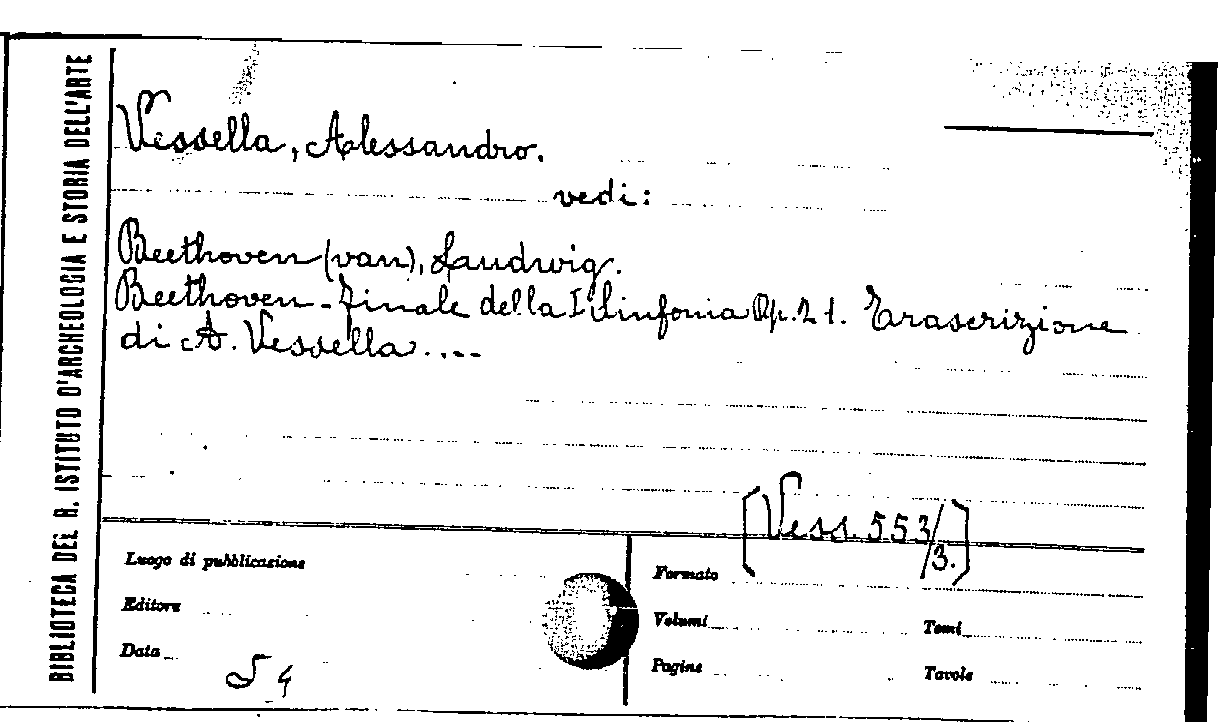 BIBLIOTECA DEL R. ISTITUTO D'ARCHEOLOGIA E STORIA DELL'ARTE
Vessella, Alessandro.
vedi:
Beethoven (van), Laudwig.
Beethoven - Finale della I Sinfonia Op. 21. Trascrizione
di A. Vessella....
[Vess. 553/3.]
Luogo di pubblicazione
Formato
Editore
Volumi
Tomi
Data
Pagine
Tavole